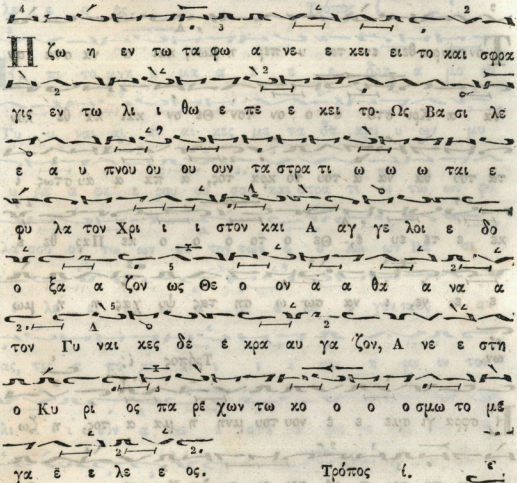 Η ζω η εν τω τα φω α νε ε κει ει το και σφρα
γις εν τω λι ι θω ε πε ε κει το· Ως Βα σι λε
ε α υ πνου ου ου ουν τα στρα τι ω ω ω ται ε
φυ λα τον Χρι ι ι στον και Α αγ γε λοι ε δο
ο ξα α ζον ως Θε ο ον α α θα α να α
τον Γυ ναι κες δε ε κρα αυ γα ζον, Α νε ε στη
ο Κυ ρι ος πα ρε χων τω κο ο ο ο σμω το με
γα ε ε λε ε ος. Τρόπος ί.